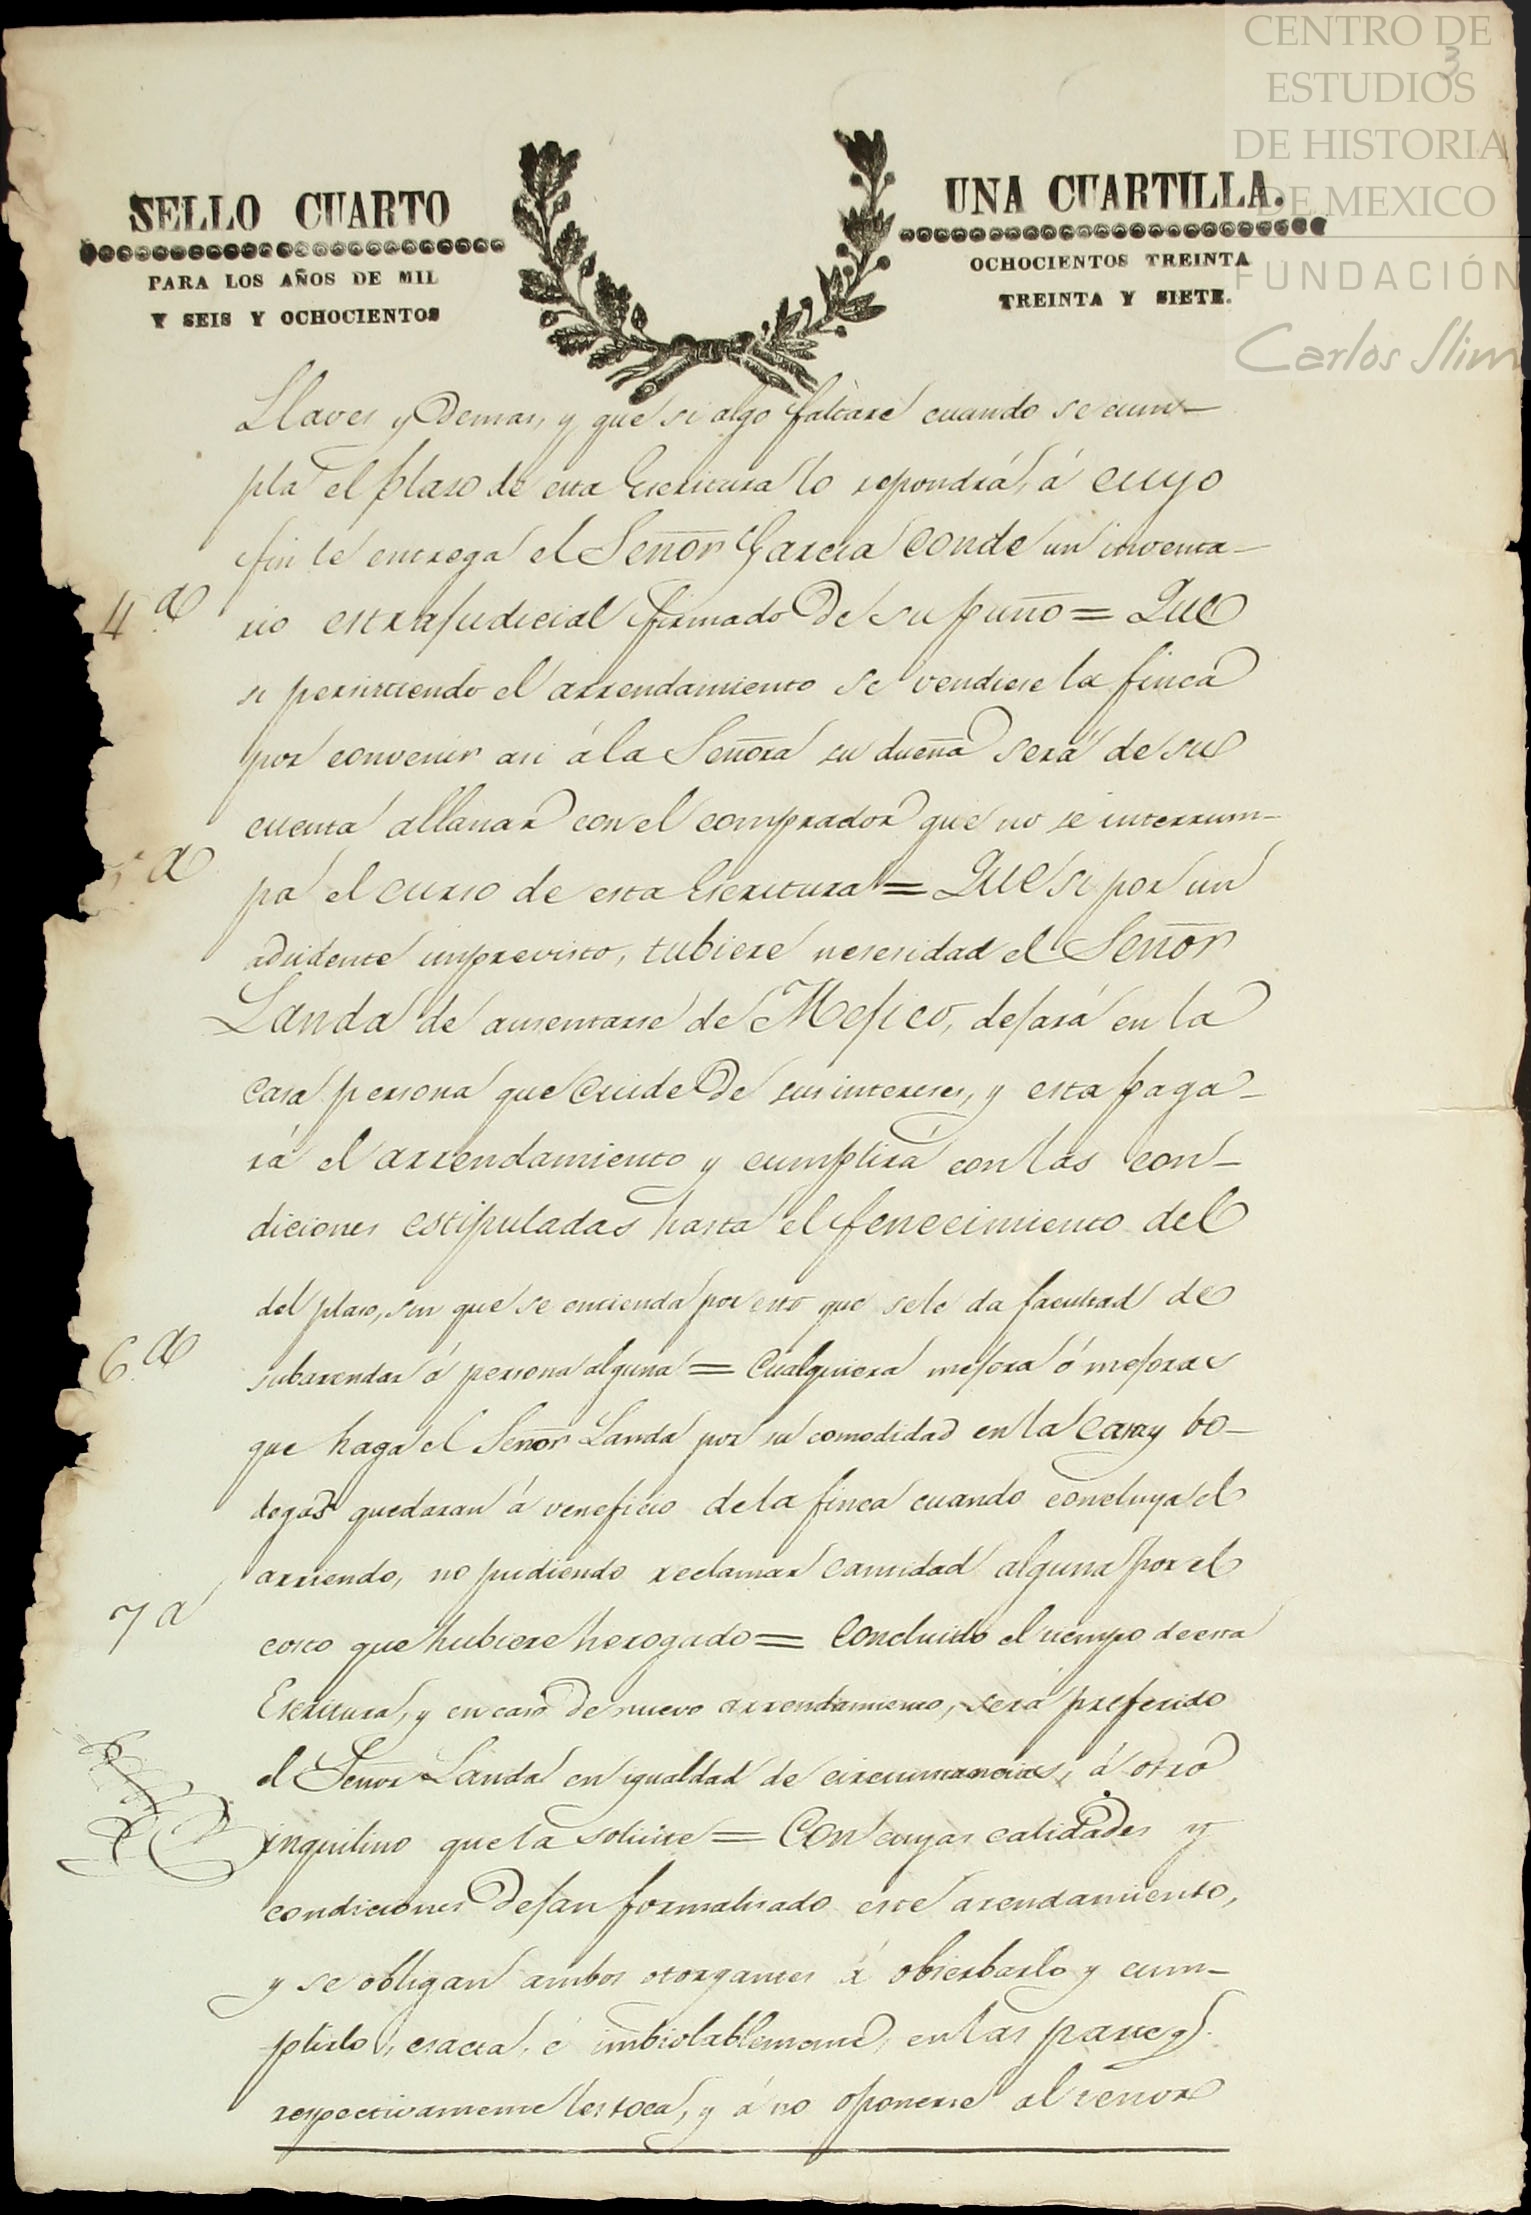 CENTRO DE
ESTUDIOS
DE HISTORIA
DE MEXICO
FUNDACIÓN
Carlos Slim
3
SELLO CUARTO
UNA CUARTILLA.
PARA LOS AÑOS DE MIL
OCHOCIENTOS TREINTA
Y SEIS Y OCHOCIENTOS
TREINTA Y SIETE.
Llaves y demas, y que si algo faltare cuando se cum-
pla el plaso de esta Escritura lo repondrá, á cuyo
fin le entrega el Señor Garcia Conde un inventa-
4.a rio estrajudicial firmado de su puño = Que
si persistiendo el arrendamiento se vendiese la finca
por convenir asi á la Señora su dueña será de su
cuenta allanar con el comprador que no se interrum-
5.a pa el curso de esta Escritura = Que si por un
adcidente imprevisto, tubiere nesesidad el Señor
Landa de ausentarse de Mejico, dejará en la
casa persona que cuide de sus intereses, y esta paga-
rá el arrendamiento y cumplirá con las con-
diciones estipuladas hasta el fenecimiento del
del plaso, sin que se entienda por esto que se le da facultad de
6.a subarrendar á persona alguna = Cualquiera mejora ó mejoras
que haga el Señor Landa por su comodidad en la casa y bo-
degas quedaran á veneficio de la finca cuando concluya el
arriendo, no pudiendo reclamar cantidad alguna por el
7a costo que hubiere herogado = Concluido el tiempo de esta
Escritura, y en caso de nuevo arrendamiento, será preferido
el Señor Landa en igualdad de circunstancias, á otro
inquilino que la solicite = Con cuyas calidades y
condiciones dejan formalisado este arendamiento,
y se obligan ambos otorgantes á obserbarlo y cum-
plirlo, esacta, é imbiolablemente, en la parte q.
respectivamente les toca, y á no oponerse al tenor